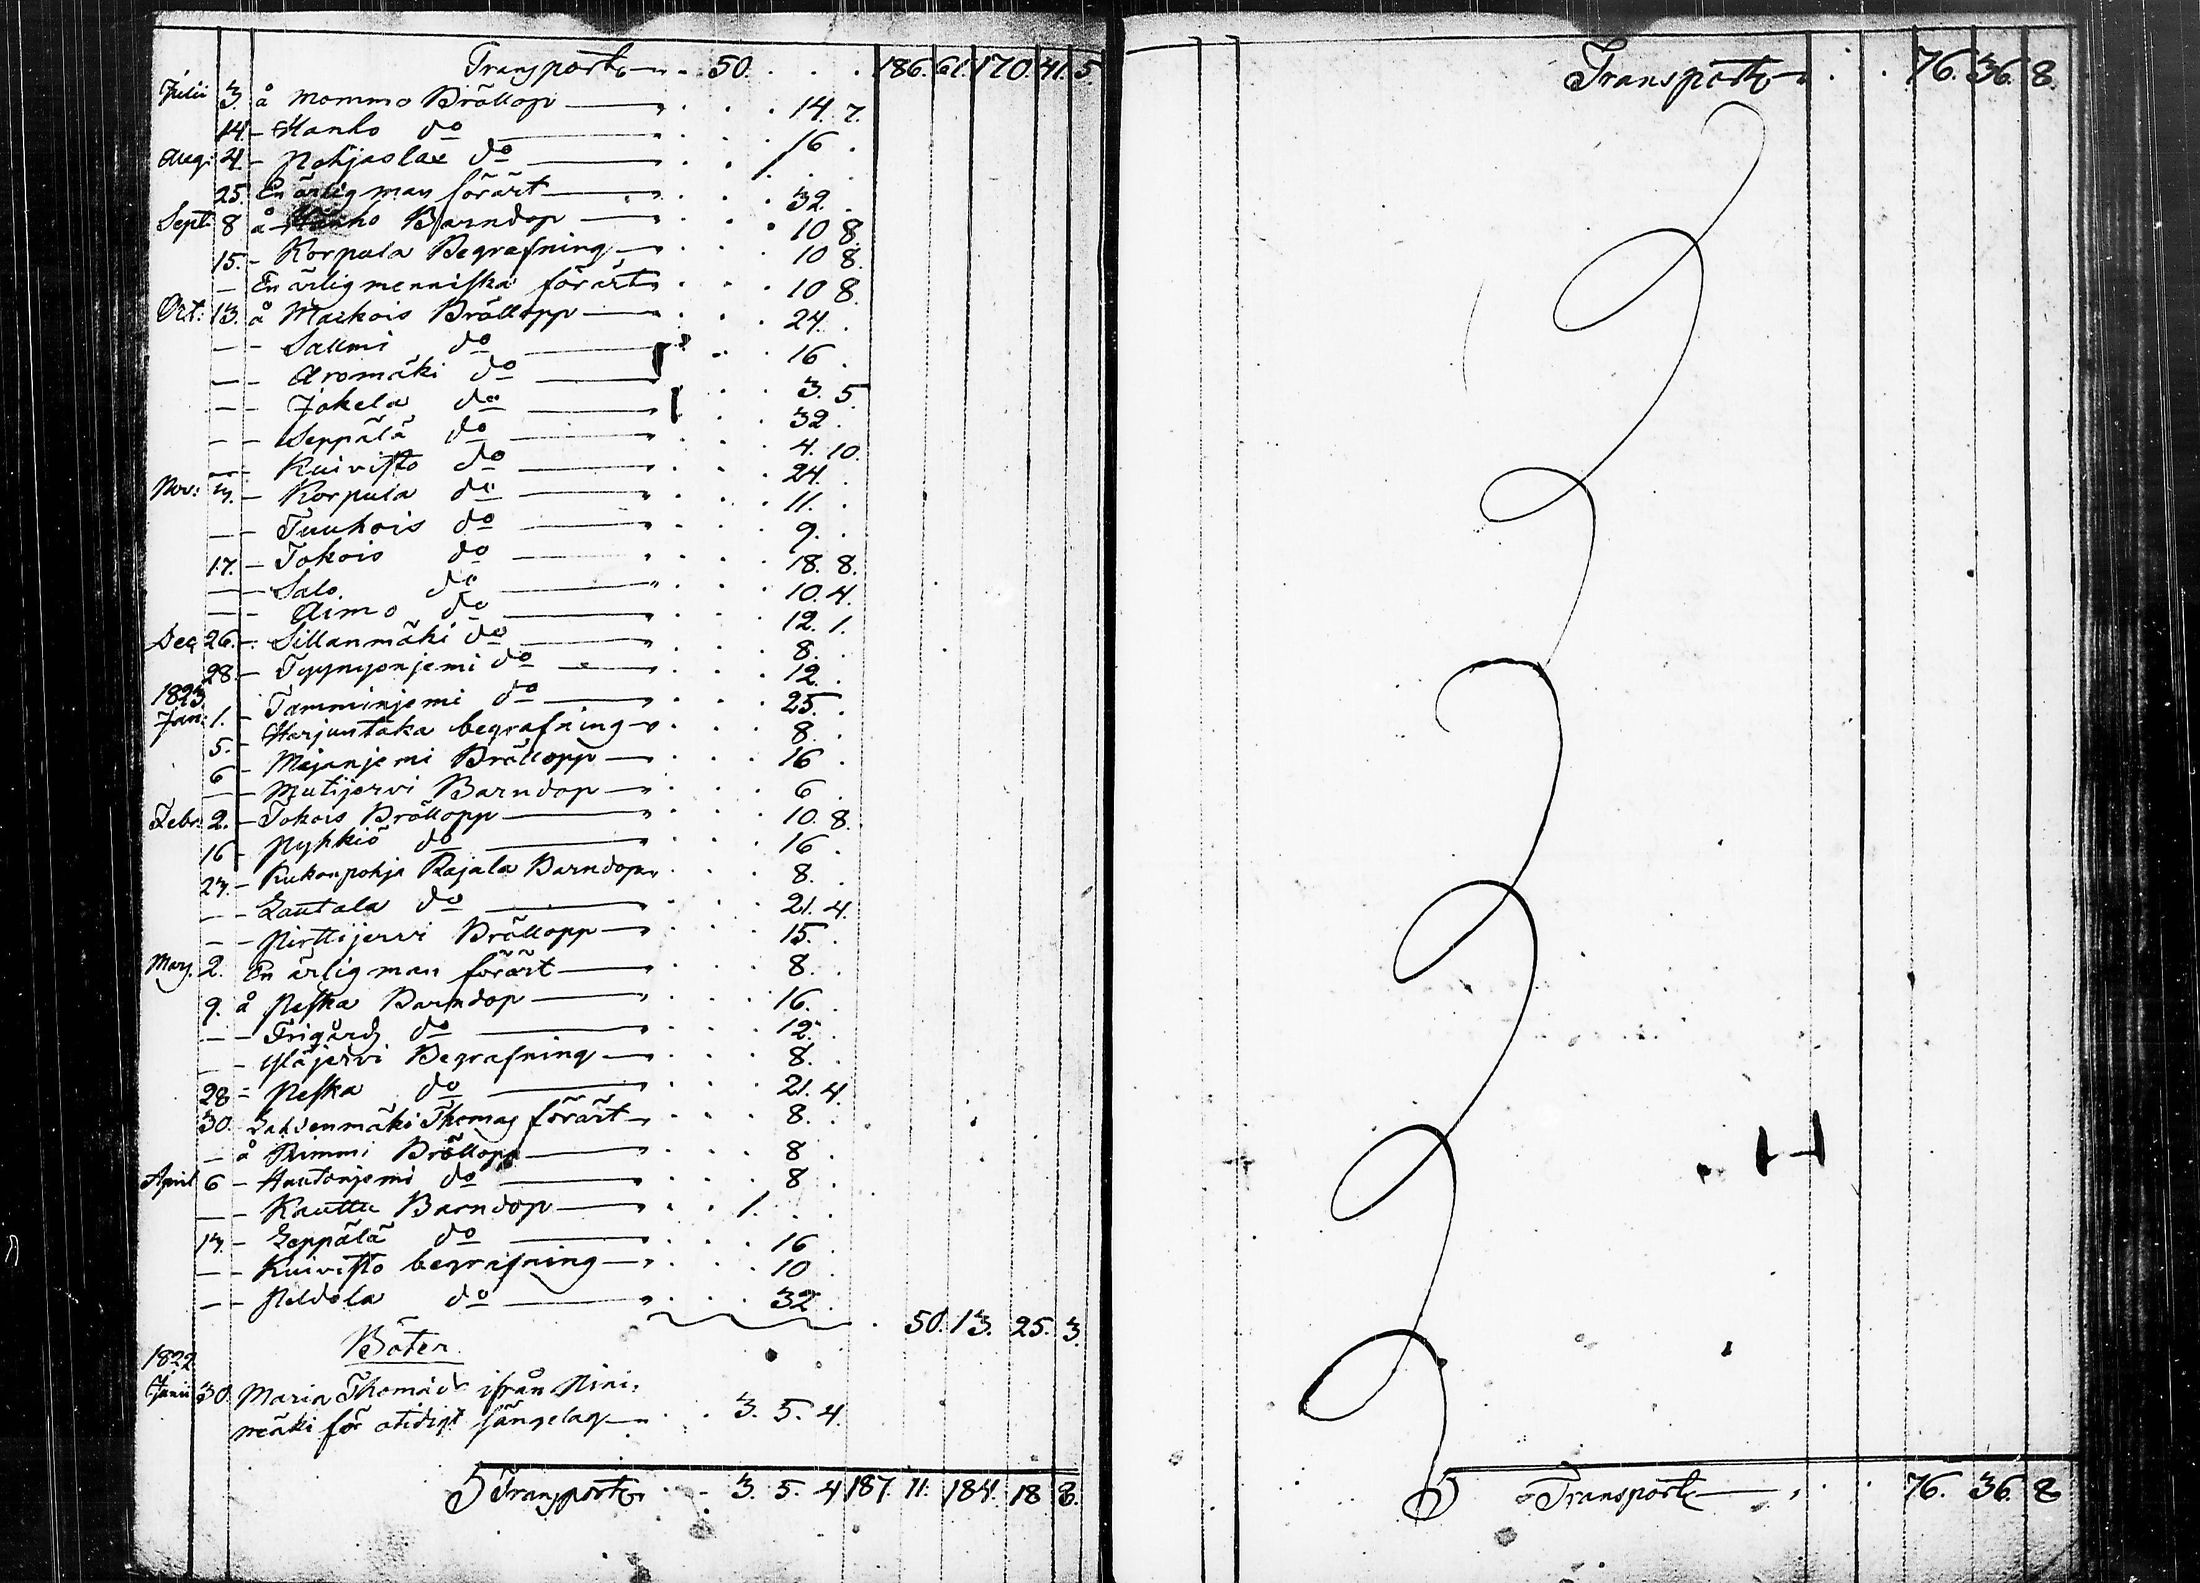 Transport 50. 186. 61. 170. 41. 5
Julii 3. å Mommo Bröllop 14. 7.
14. - Hanko do 16
Aug: 4. - Pohjaslax do 1.
25. En ärlig man förärt 32.
Sept: 8 å Hanho Barndop 10 8.
15. - Korpula Begrafning 10 8.
- En ärlig menniska förärt 10 8.
Oct: 13. å Markois Bröllopp 24.
- - Sallmi do 16
- - Aromäki do 3. 5.
- - Jokela do 32.
- - Seppälä do 4. 10.
- - Kuivisto do 24.
Nov: 3. - Korpula do 11.
- - Tuuhois do 9.
17. - Tokois do 18. 8.
- - Salo do 10. 4.
- - Aimo do 12. 1.
Dec 26. - Sillanmäki do 8.
28. - Tyynyonjemi do 12.
1823.
Jan: 1. - Tamminjemi do 25.
5. - Harjuntaka begrafning 8.
6 - Majanjemi Bröllopp 16
- - Mutijervi Barndop 6
Febr: 2. - Tokois Bröllopp 10. 8.
16 - Pyhkiö do 16
23. - Kukonpohja Rajala Barndop 8.
- - Lautala do 21. 4.
- - Pirttijervi Bröllopp 15.
Mars. 2. En ärlig man förärt 8.
9. å Peska Barndop 16.
- - Frigård do 12.
- - Yläjervi Begrafning 8.
28 - Peska do 21. 4
30. Lahdenmäki Thomas förärt 8.
- å Rimmi Bröllopp 8
April 6 - Hautonjemi do 8
- - Kauttu Barndop 1.
13. - Seppälä do 16
- - Kuivisto begrafning 10
- - Peldola do 32.
50. 13. 25. 3
Böter
1822
Junii 30. Maria Thomædr ifrån Nini,
mäki för otidigt sängelag 3. 5. 4.
Transport 3. 5. 4 187. 11. 184. 18 8.
Transport 76. 36. 8.
Transport 76. 36. 8